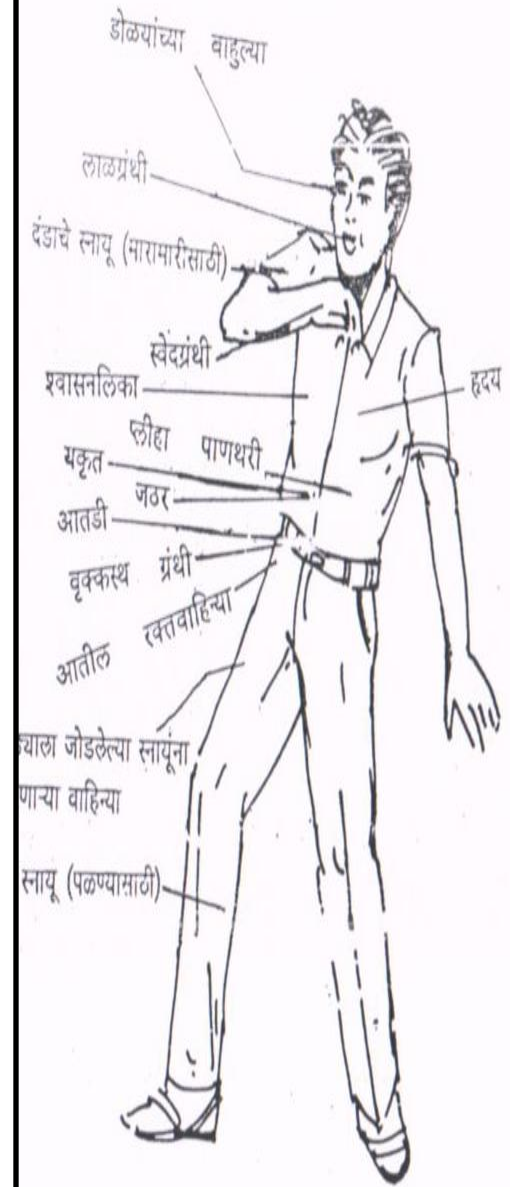 डोळयांच्या वाहुल्या
लाळग्रंथी
दंडाचे स्नायू (मारामारीसाठी)
स्वेंदग्रंथी
श्वासनलिका
हृदय
प्लीहा पाणथरी
यकृत
जठर
आतडी
वृक्कस्थ ग्रंथी
आतील रक्तवाहिन्या
च्याला जोडलेल्या स्नायूंना
णाऱ्या वाहिन्या
स्नायू (पळण्यासाठी)